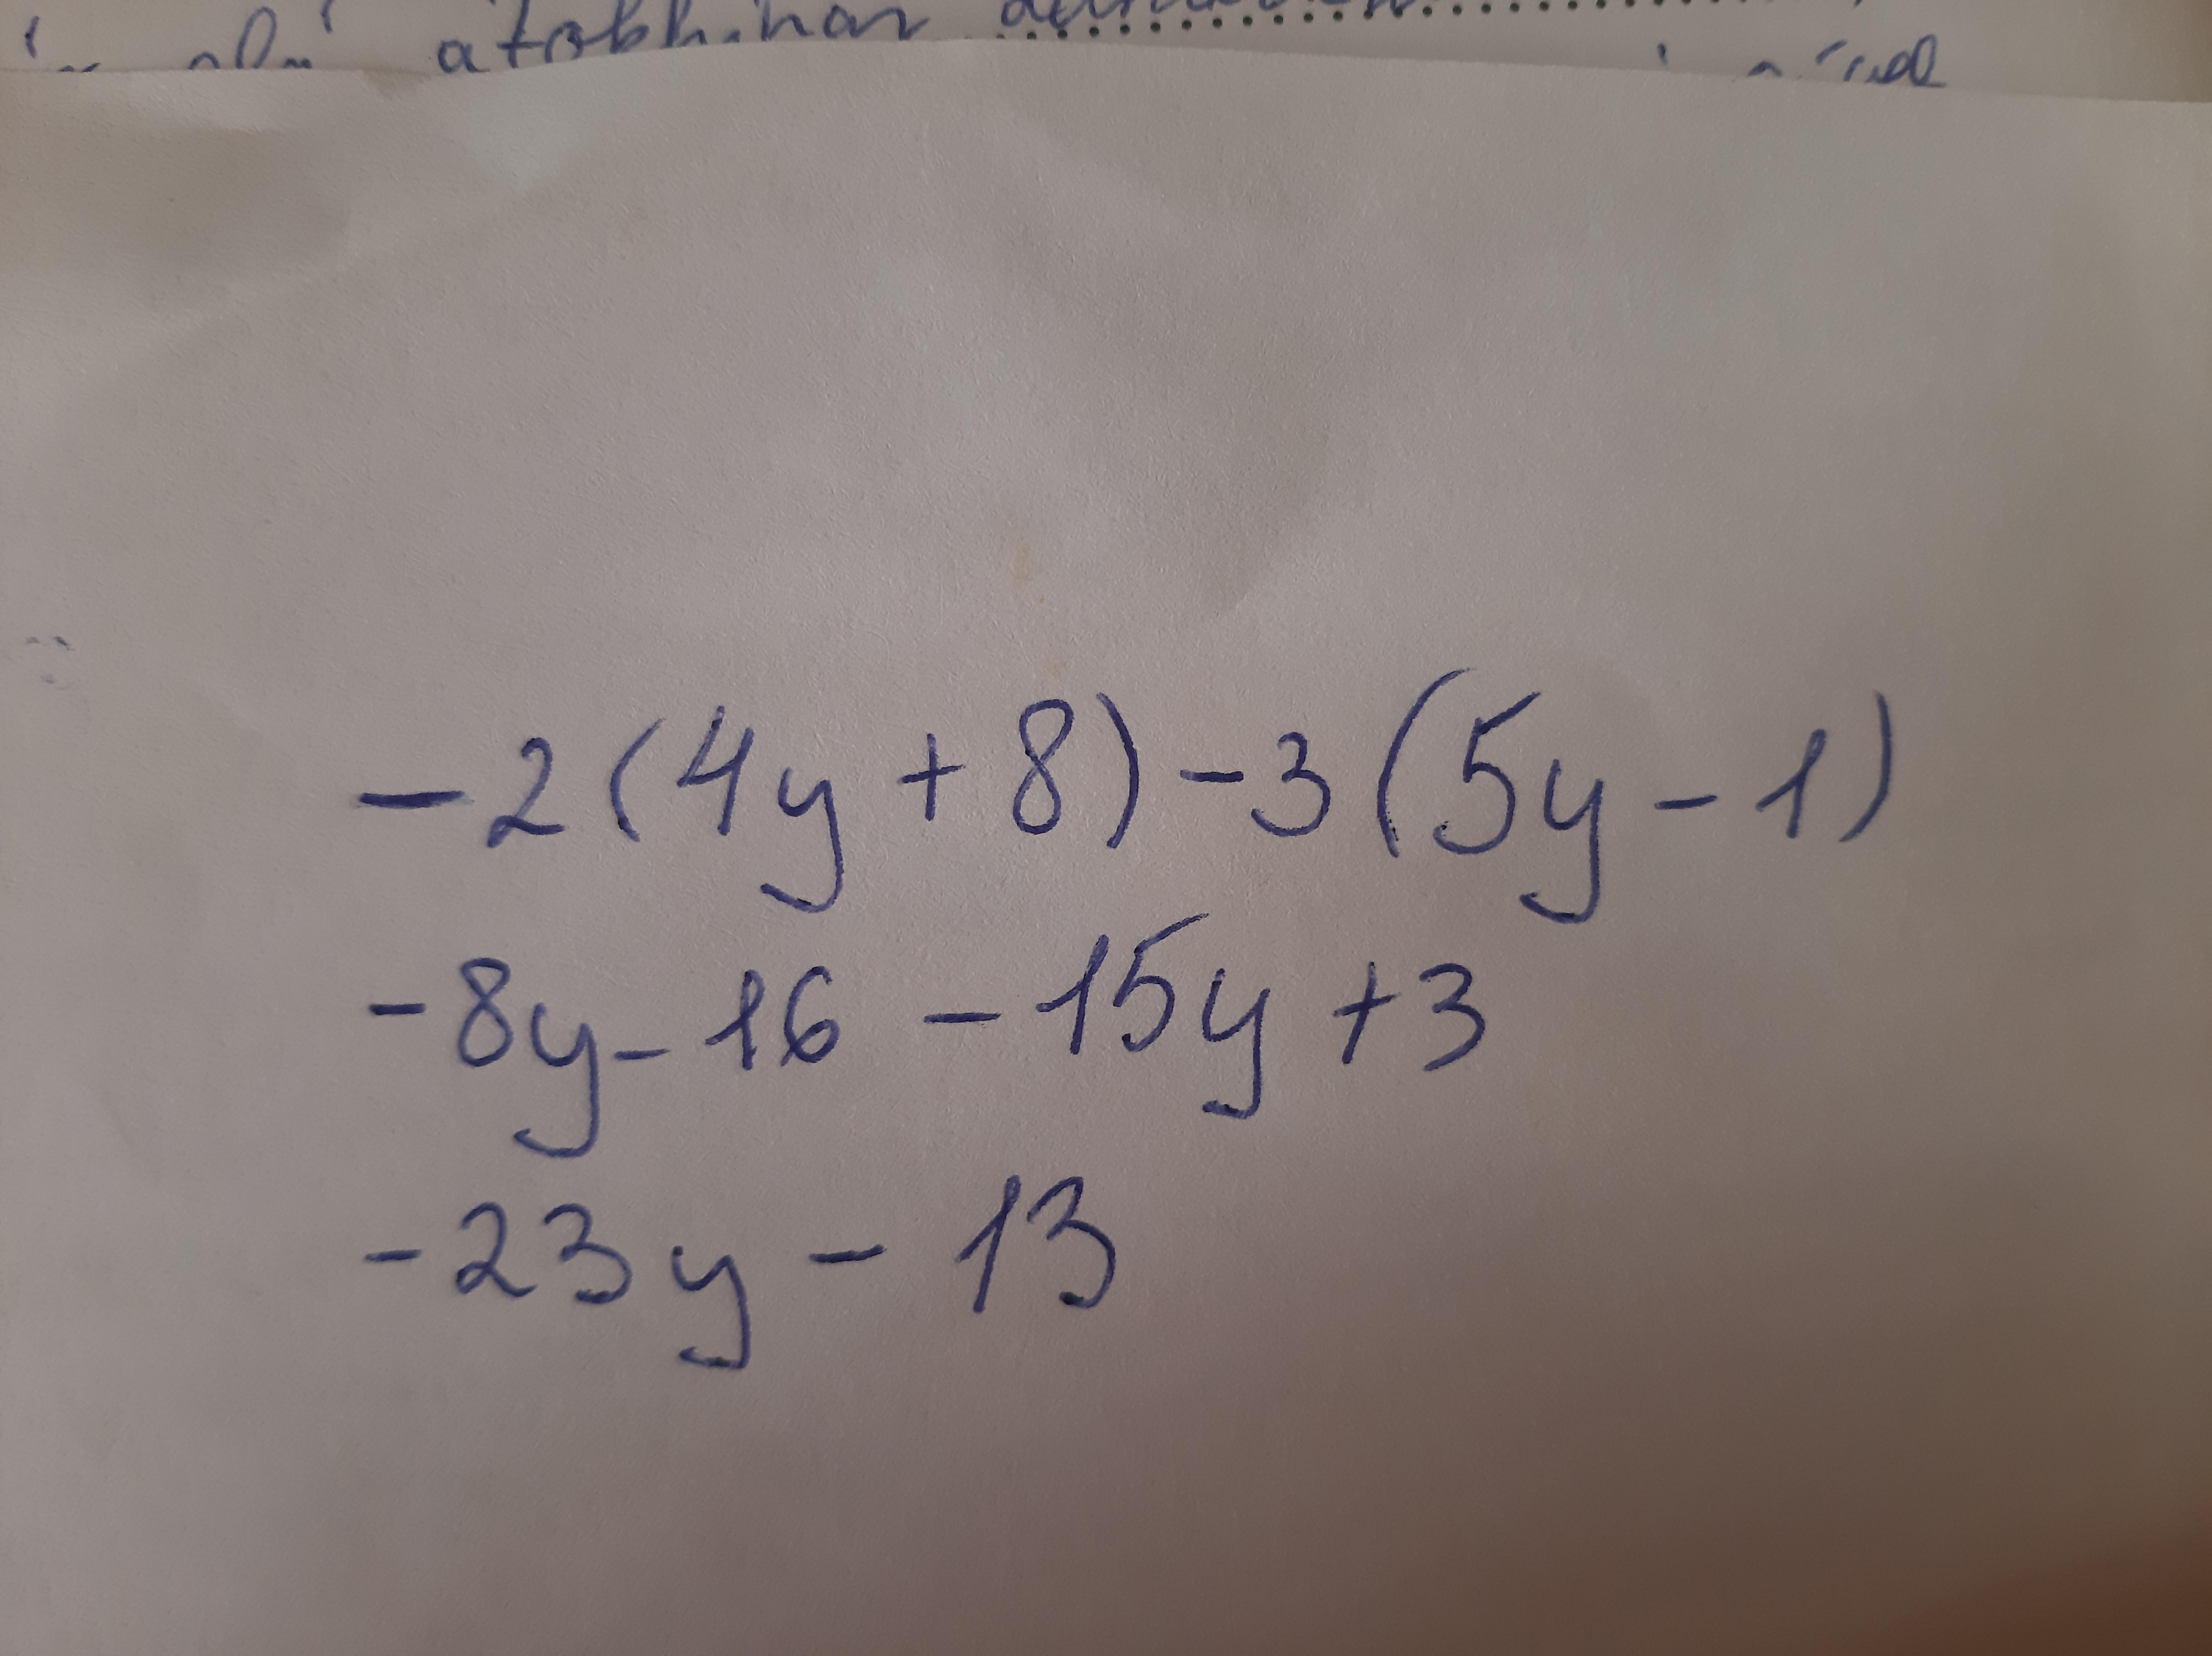 -2(4y+8)-3(5y-1)
-8y-16-15y+3
-23y-13